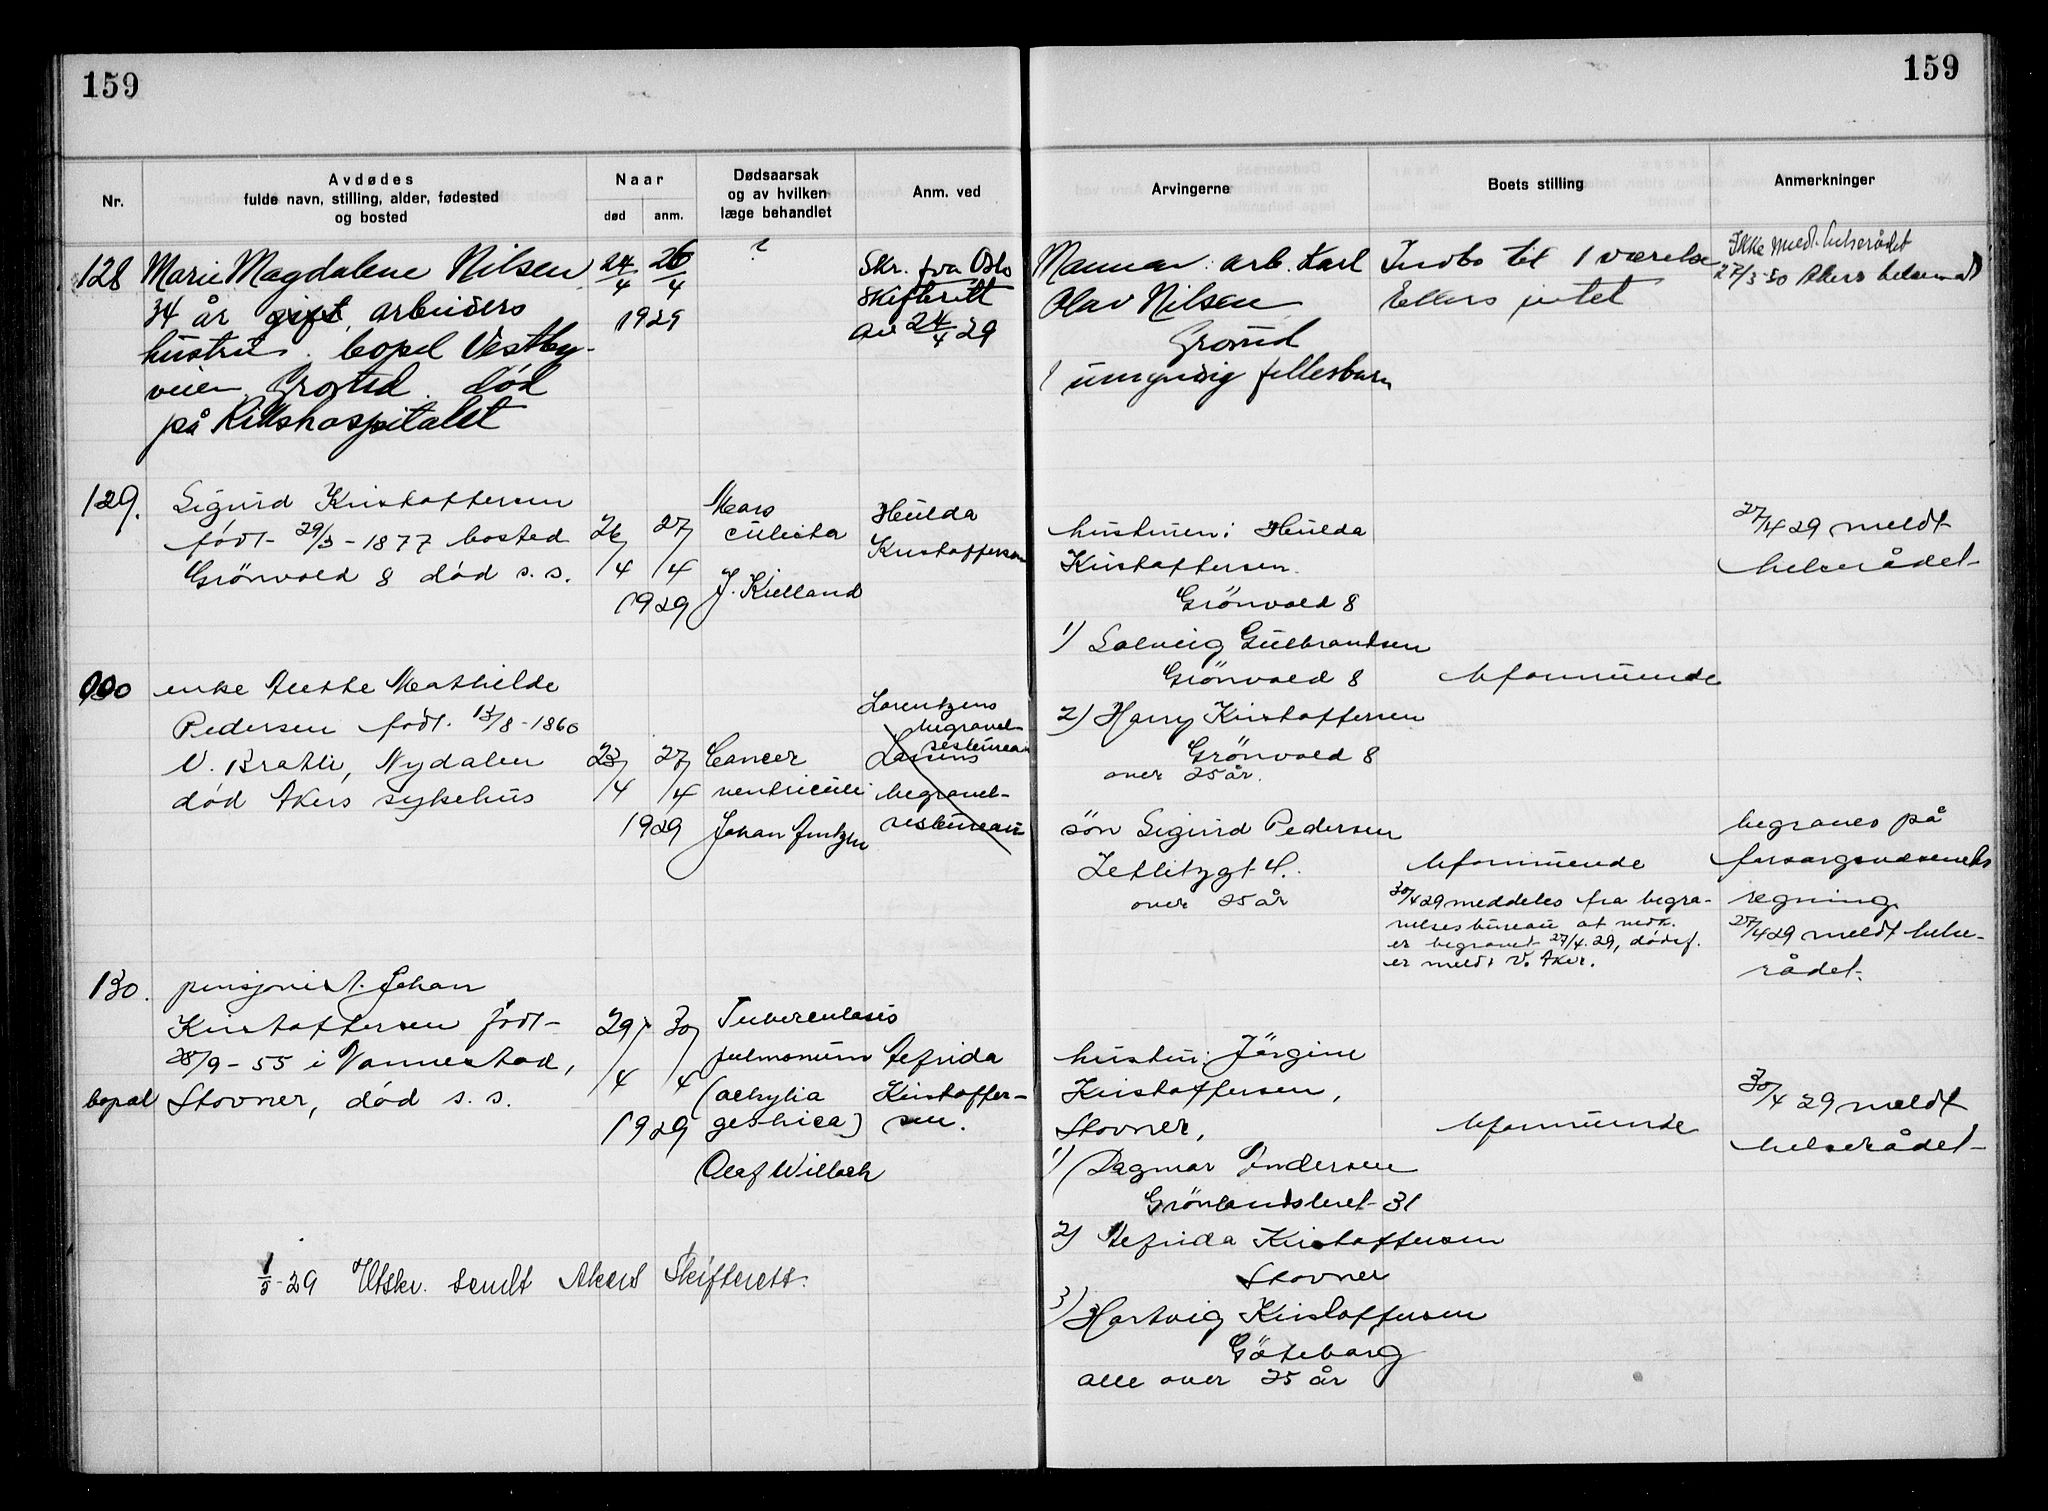 159
159
Nr.
Avdødes
fulde navn, stilling, alder, fødested
og bosted
Naar
død
anm.
Dødsaarsak
og av hvilken
læge behandlet
Anm. ved
Arvingerne
Boets stilling
Anmerkninger
128
Marie Magdalene Nilsen
34 år gift, arbeiders
hustru. bopel Vestby-
veien Grorud. død
på Rikshospitalet
24/4
26/4
1929
?
Skr. fra Oslo
skifterett
av 24/4 29
Mannen: arb. Karl
Olav Nilsen
Grorud
1 umyndig fellesbarn
Indbo til 1 værelse
Ellers intet
Ikke meldt helserådet
27/3-30 Akers helseråd
129.
Sigurd Kristoffersen
født 29/3-1877 bosted
Grönvold 8 død s. s.
26/4
27/4
1929
Mors
subita
J. Kielland
Hulda
Kristoffersen
hustruen: Hulda
Kristoffersen.
Grönvold 8
1) Solveig Gulbrandsen
Grönvold 8
2) Harry Kristoffersen
Grönvold 8
over 25 år.
Uformuende
27/4 29 meldt
helserådet
000
enke Anette Mathilde
Pedersen født 13/8-1860
N. Bratli, Nydalen
død Akers sykehus
23/4
27/4
1929
Cancer
ventriculi
Johan
Lorentzens
begravel-
sesbureau
Lassens
begravel-
sesbureau
sön Sigurd Pedersen
Zetlitzgt 4.
over 25 år
Uformuende
30/4 29 meddeles fra begra-
velsesbureau at vedk.
er begravet 27/4.29, dødsf.
er meldt V. Aker.
begraves på
forsorgsvesenets
regning.
27/4 29 meldt helse-
rådet.
130.
pensjonist Johan
Kristoffersen født
28/9-55 i Vannestad,
bopel Stovner, død s. s.
29/4
30/4
1929
Tuberculosis
pulmonum
(achylia
gastrica)
Olaf Willoch
Alfrida
Kristoffer-
sen.
hustru: Jörgine
Kristoffersen,
Stovner,
1) Dagmar Andersen
Grönlandsleret 31
2) Alfrida Kristoffersen
Stovner
3) Hartvig Kristoffersen
Göteborg
alle over 25 år
Uformuende
30/4 29 meldt
helserådet
1/5-29 Utskr. sendt Akers Skifterett.